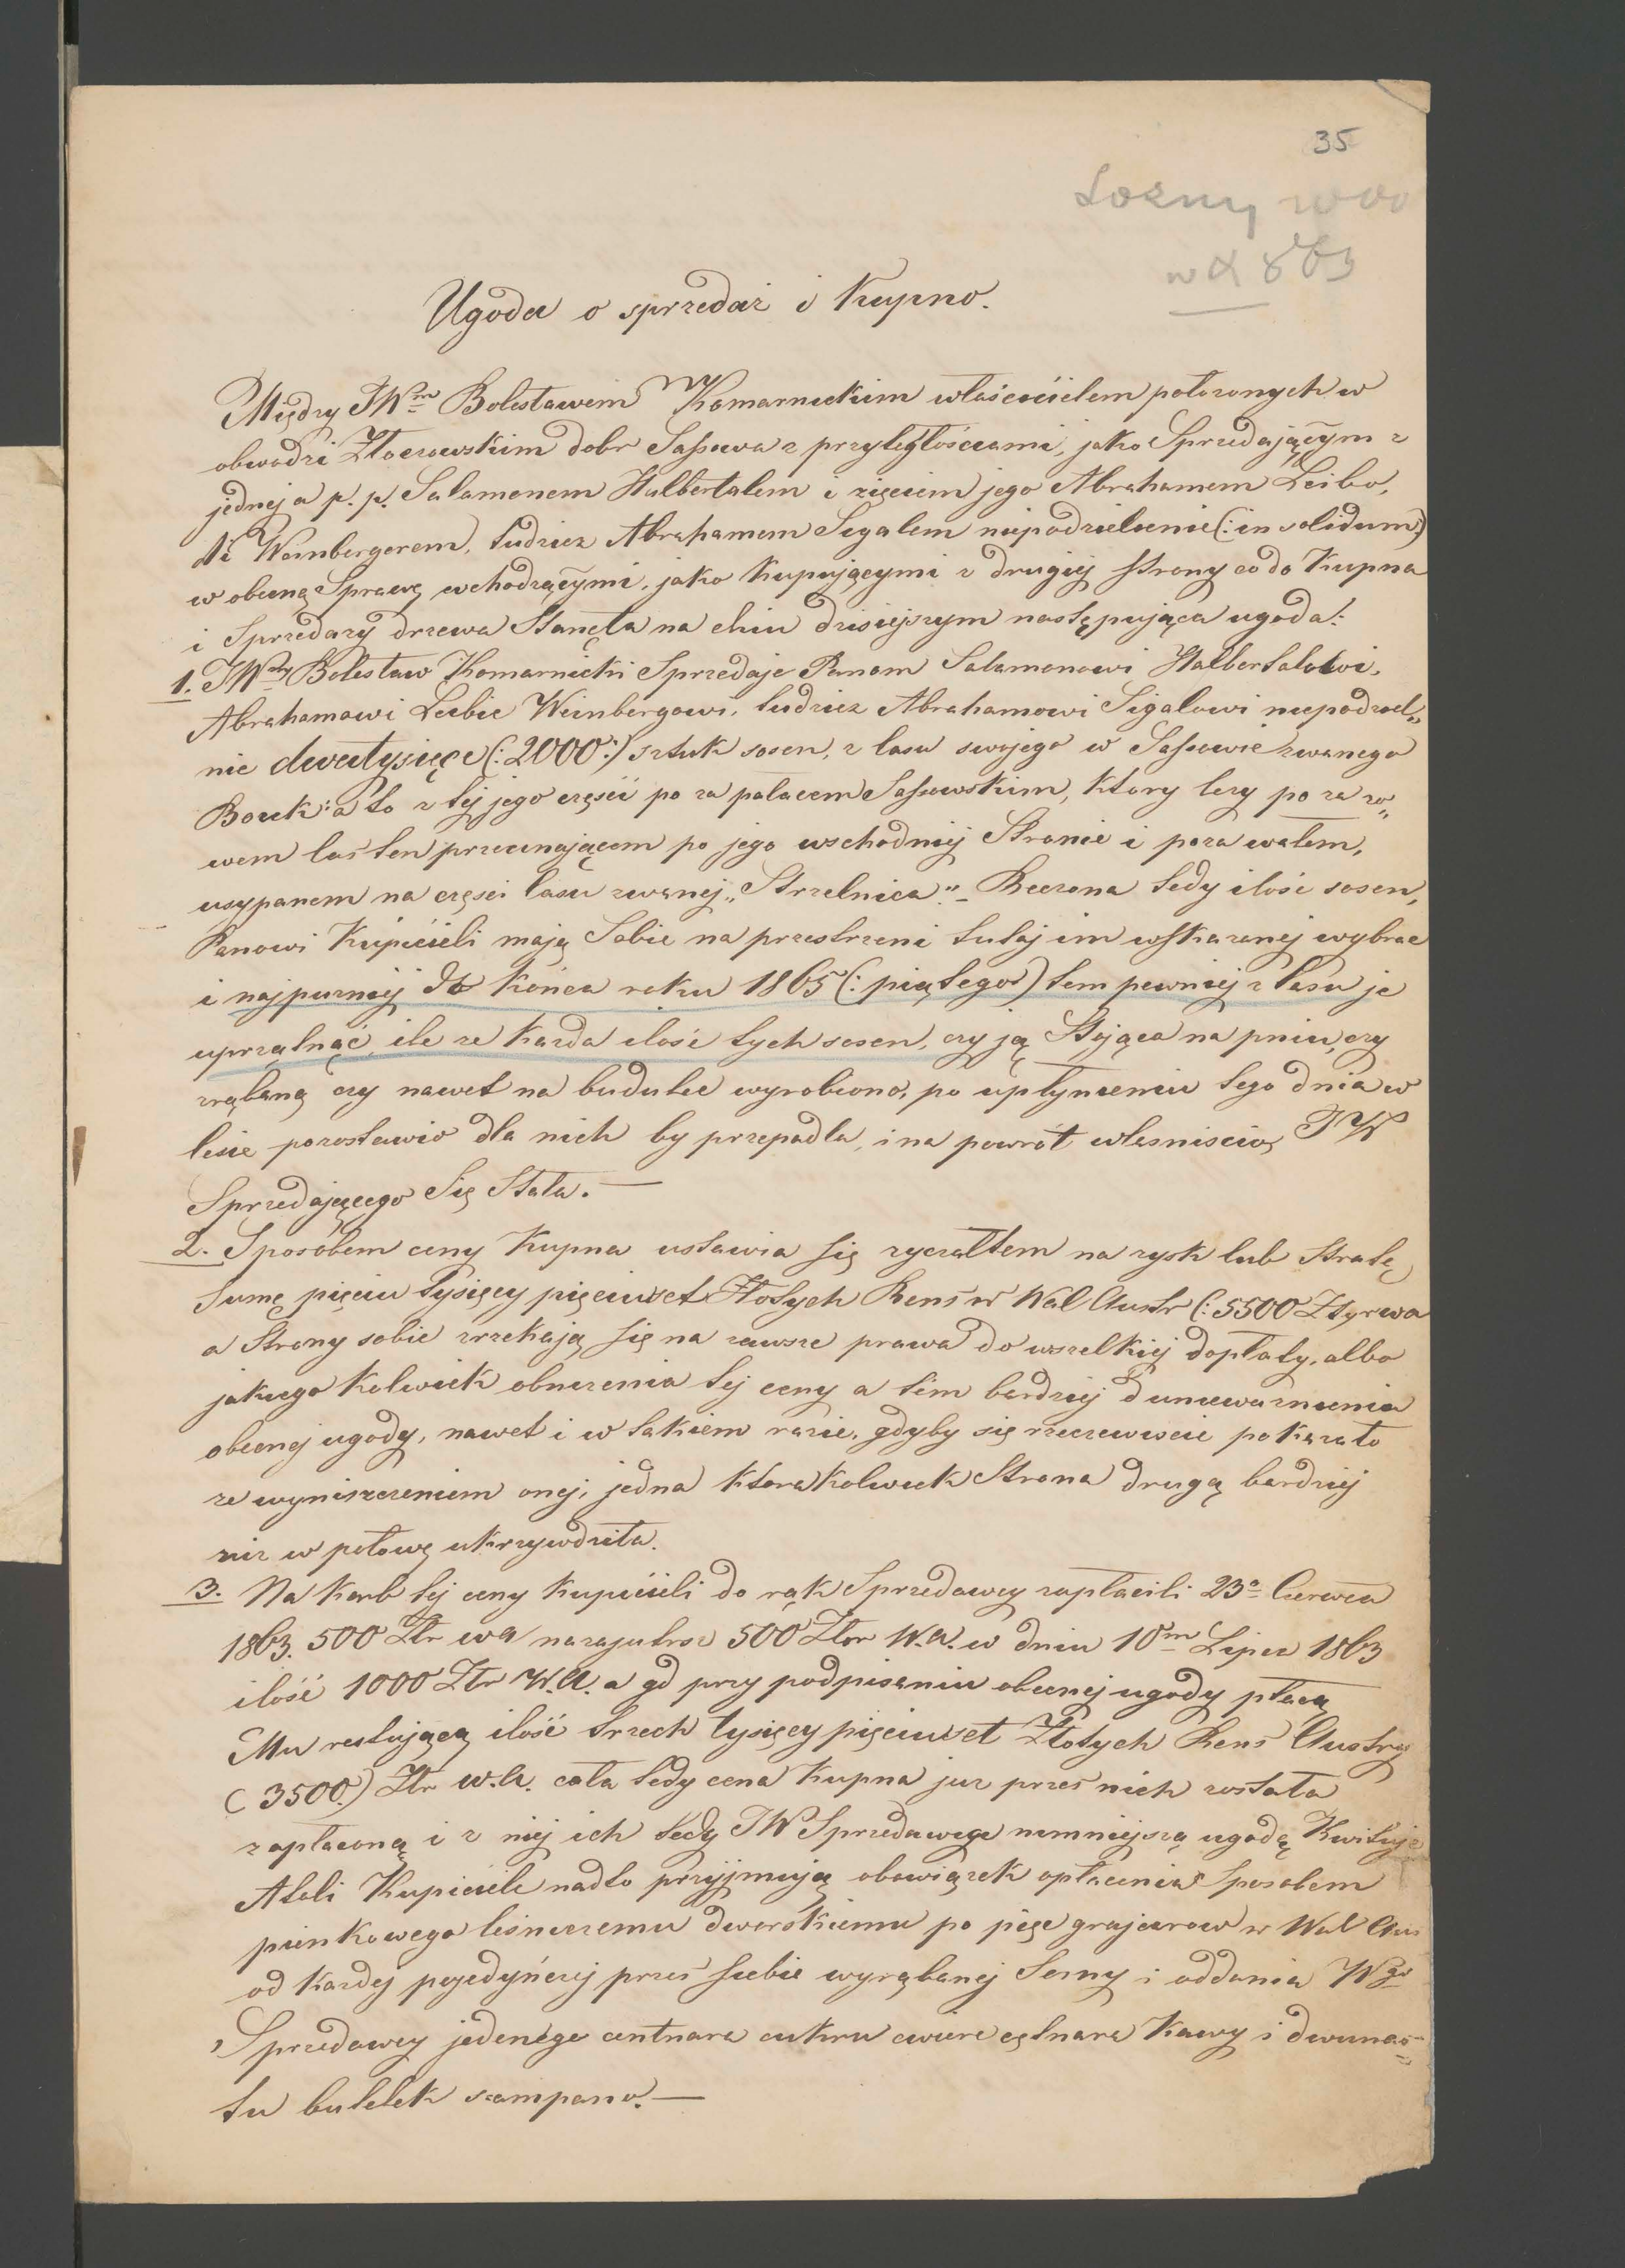 35
Sosny
w 1863
Ugoda o sprzedaż i Kupno.
Między JWm Bolesławem Komarnickim właścicielem położonych w
obwodzi Złoczowskim dobr Sassowa z przyległościami, jako Sprzedającym z
jednej a p. p. Salamonem Halbertalem i zięciem jego Abrahamem Leibo,
Weinbergerem, tudziez Abrahamem Sigalem niepodzielnie (: in solidum :)
w obecną Sprawę wchodzącymi, jako Kupującymi z drugiej strony co do Kupna
i Sprzedazy drzewa Stanęła na dniu dzisiejszym następująca ugoda:
1. JWny Bolesław Komarnicki Sprzedaje Panom Salamonowi Halbertalowi,
Abrahamowi Leibie Weinbergowi, tudziez Abrahamowi Sigalowi niepodziel„
nie dwatysięce (: 2000 :) sztuk sosen, z lasu swojego w Sassowie zwanego
Borek: a to z tej jego części po za pałacem Sassowskim, który lezy po za ro„
wem las ten przecinającem po jego wschodniej Stronie i poza wałem,
usypanem na części lasu zwanej „Strzelnica." – Rzeczona tedy ilość sosen,
Panowi Kupiciili mają Sobie na przestrzeni tutaj im wskazanej wybrac
i najpuzniej do Końca roku 1865 (: piątego) tem pewniej z lasu je
uprzątnąć, ile ze Kazda ilośc tych sosen, czy ją Stojąca na pniu, czy
zrąbaną czy nawet na budulec wyrobiono, po upłynieniu tego dnia w
lesie pozostawio dla nich by przepadla, i na powrót własniscią JW
Sprzedającego Się Stała. —
2. Sposobem ceny Kupna ustawia się ryczałtem na zysk lub Stratę
Sumę pięciu tysięcy pięciuset Złotych Rens w Wal Austr (: 5500 Złyrwa
a Strony sobie zrzekają się na zawsze prawa do wszelkiej dopłaty, albo
jakiego Kolwiek obnizenia tej ceny a tim bardziej d uniewaznienia
obecnej ugody, nawet i w takiem razie, gdyby się rzeczewiscie pokazało
ze wyniszczeniem onej, jedna Ktorakolwiek Strona drugą bardziej
niz w połowę ukrzywdziła.
3. Na Karb tej ceny Kupiciili do rąk Sprzedawcy zapłacili 23o Czerwca
1863. 500 Złr wa nazajutrz 500 Złor W.A. w dniu 10m Lipca 1863
ilość 1000 Złr W.A. a gd przy podpisaniu obecnej ugody płacą
Mu restującą ilość trzech tysięcy pięciuset Złotych Rens Austry
( 3500.) Złr w.a. cała tedy cena Kupna juz przes nich została
zapłaconą i z niej ich tedy JW Sprzedawca nimniejszą ugodą Kwituje
Atoli Kupiciele nadto przyjmują obowiązek opłacenia Sposobem
pienkowego lesniczemu dworskiemu po pięc grajcarow w Wal Aus
od Kazdej pojedyńczej przes siebie wyrąbanej Sosny i oddania Wgo
Sprzedawcy jedenégo centnara cukru cwierc cętnara Kawy i dwunas„
tu butelek szampano. —